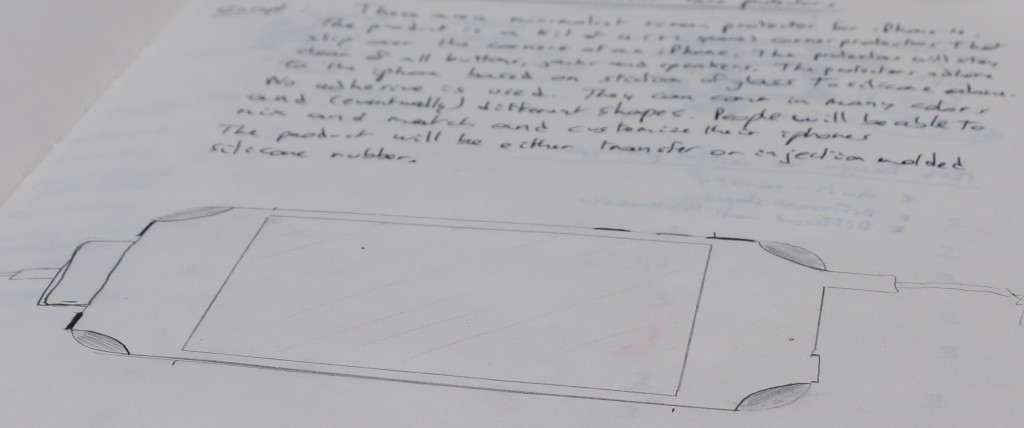 These are a minimalist screen protector for iPhone 4.
The product is a kit of 4 corner protectors that
slip over the corners of an iPhone. The protectors will stay
clear of all buttons, jacks and speakers. The protectors adhere
to the iphone based on stiction of glass to silicone alone.
No adhesive is used. They can come in many colors
and (eventually) different shapes. People will be able to
mix and match and customize their iphones
The product will be either transfer or injection molded
silicone rubber.